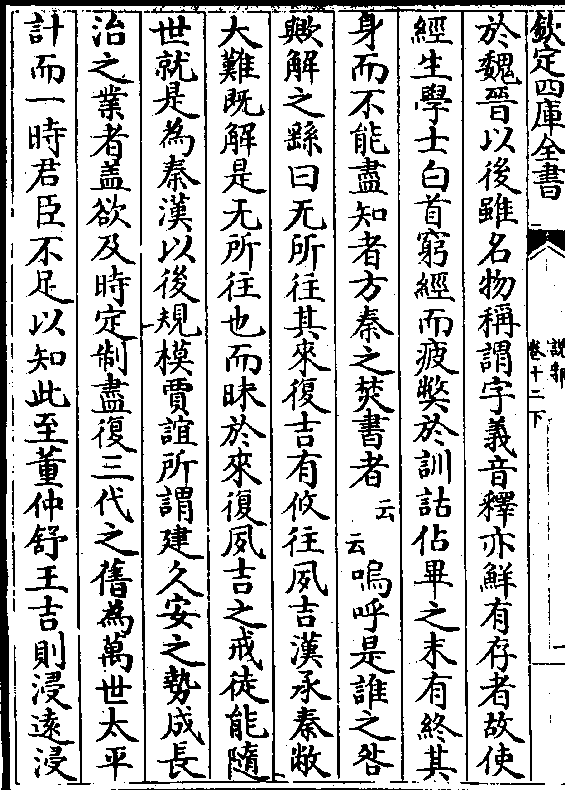 欽定四庫全書
說郛
卷十二下
於魏晉以後雖名物稱謂字義音釋亦鮮有存者故使
經生學士白首窮經而疲獘於訓詁佔畢之末有終其
身而不能盡知者方秦之焚書者云云嗚呼是誰之咎
歟解之繇曰无所往其來復吉有攸往夙吉漢承秦敝
大難既解是无所往也而昧於來復夙吉之戒徒能隨
世就是為秦漢以後規模賈誼所謂建久安之勢成長
治之業者盖欲及時定制盡復三代之舊為萬世太平
計而一時君臣不足以知此至董仲舒王吉則浸遠浸